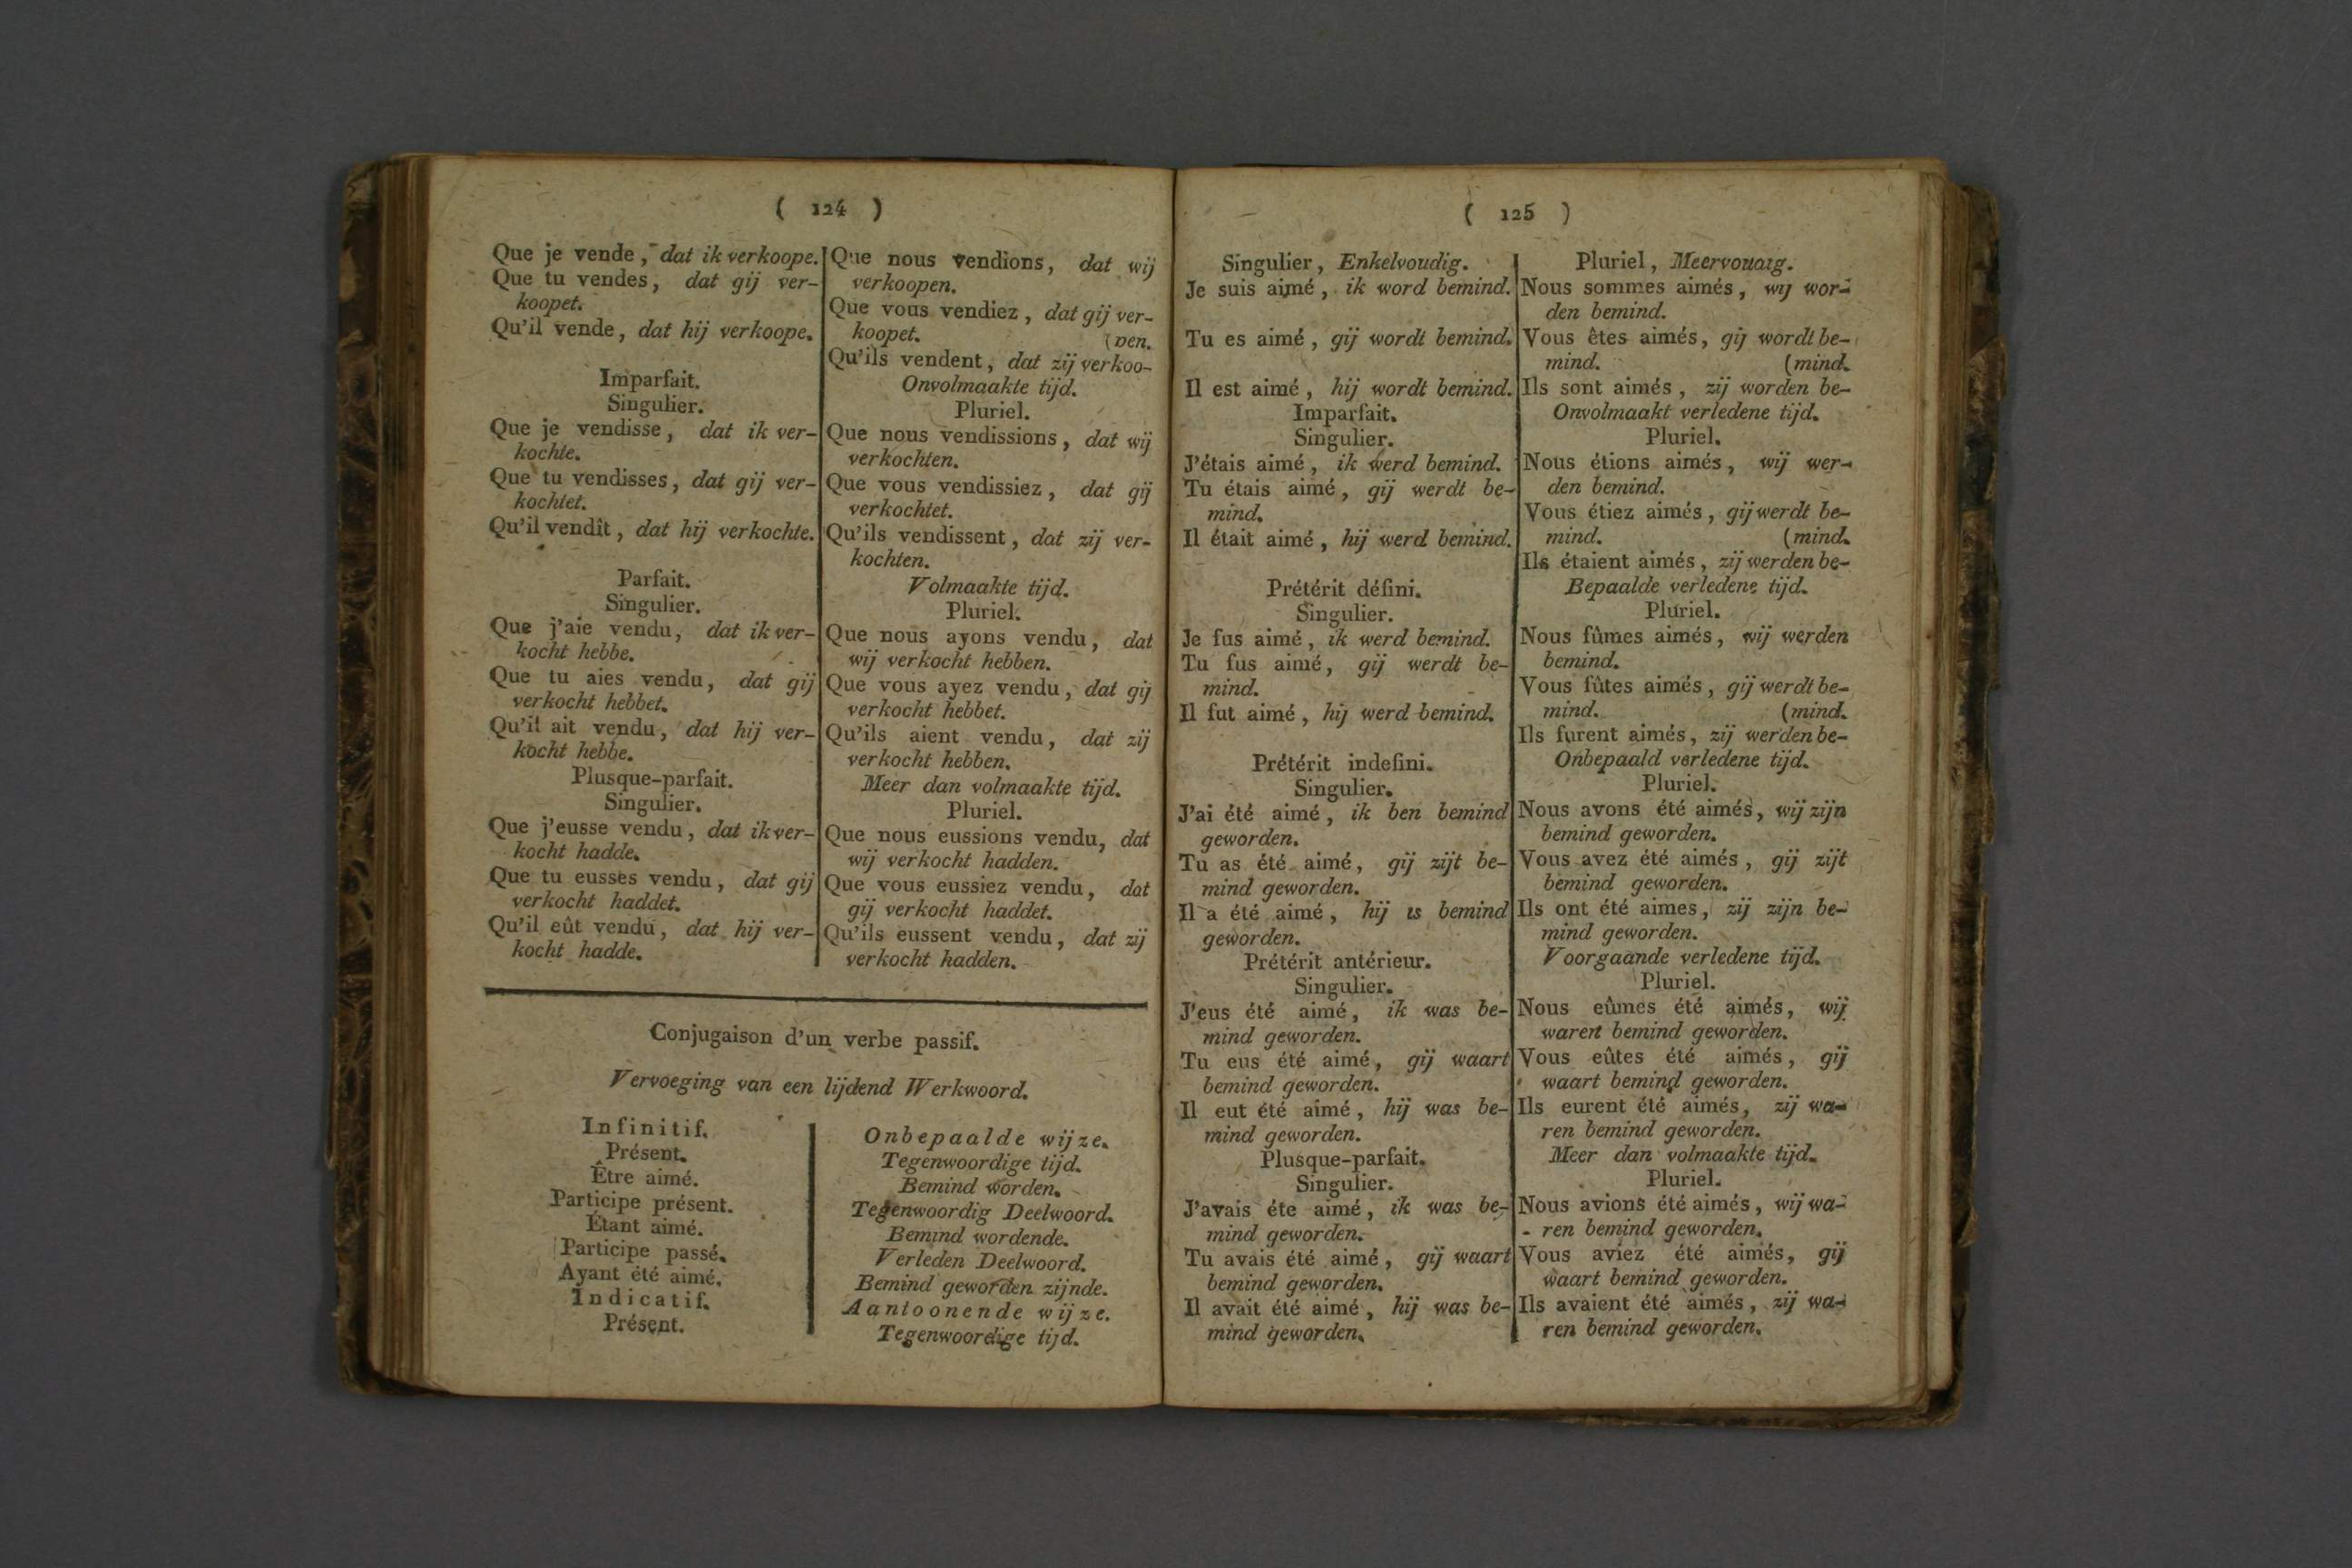 ( 124 )
Que je vende, dat ik verkoope.
Que tu vendes, dat gij ver-
koopet.
Qu'il vende, dat hij verkoope.
Imparfait.
Singulier.
Que je vendisse, dat ik ver-
kochte.
Que tu vendisses, dat gij ver-
kochtet.
Qu'il vendît, dat hij verkochte.
Parfait.
Singulier.
Que j'aie vendu, dat ik ver-
kocht hebbe.
Que tu aies vendu, dat gij
verkocht hebbet.
Qu'il ait vendu, dat hij ver-
kocht hebbe.
Plusque-parfait.
Singulier.
Que j'eusse vendu, dat ik ver-
kocht hadde.
Que tu eusses vendu, dat gij
verkocht haddet.
Qu'il eût vendu, dat hij ver-
kocht hadde.
Que nous vendions, dat wij
verkoopen.
Que vous vendiez, dat gij ver-
koopet. (pen.
Qu'ils vendent, dat zij verkoo-
Onvolmaakte tijd.
Pluriel.
Que nous vendissions, dat wij
verkochten.
Que vous vendissiez, dat gij
verkochtet.
Qu'ils vendissent, dat zij ver-
kochten.
Volmaakte tijd.
Pluriel.
Que nous ayons vendu, dat
wij verkocht hebben.
Que vous ayez vendu, dat gij
verkocht hebbet.
Qu'ils aient vendu, dat zij
verkocht hebben.
Meer dan volmaakte tijd.
Pluriel.
Que nous eussions vendu, dat
wij verkocht hadden.
Que vous eussiez vendu, dat
gij verkocht haddet.
Qu'ils eussent vendu, dat zij
verkocht hadden.
Conjugaison d'un verbe passif.
Vervoeging van een lijdend Werkwoord.
Infinitif.
Présent.
Être aimé.
Participe présent.
Étant aimé.
Participe passé.
Ayant été aimé.
Indicatif.
Présent.
Onbepaalde wijze.
Tegenwoordige tijd.
Bemind worden.
Tegenwoordig Deelwoord.
Bemind wordende.
Verleden Deelwoord.
Bemind geworden zijnde.
Aantoonende wijze.
Tegenwoordige tijd.
( 125 )
Singulier, Enkelvoudig.
Je suis aimé, ik word bemind.
Tu es aimé, gij wordt bemind.
Il est aimé, hij wordt bemind.
Imparfait.
Singulier.
J'étais aimé, ik werd bemind.
Tu étais aimé, gij werdt be-
mind.
Il était aimé, hij werd bemind.
Prétérit défini.
Singulier.
Je fus aimé, ik werd bemind.
Tu fus aimé, gij werdt be-
mind.
Il fut aimé, hij werd bemind.
Prétérit indefini.
Singulier.
J'ai été aimé, ik ben bemind
geworden.
Tu as été aimé, gij zijt be-
mind geworden.
Il a été aimé, hij is bemind
geworden.
Prétérit antérieur.
Singulier.
J'eus été aimé, ik was be-
mind geworden.
Tu eus été aimé, gij waart
bemind geworden.
Il eut été aimé, hij was be-
mind geworden.
Plusque-parfait.
Singulier.
J'avais éte aimé, ik was be-
mind geworden.
Tu avais été aimé, gij waart
bemind geworden.
Il avait été aimé, hij was be-
mind geworden.
Pluriel, Meervoudig.
Nous sommes aimés, wij wor-
den bemind.
Vous êtes aimés, gij wordt be-
mind. (mind.
Ils sont aimés, zij worden be-
Onvolmaakt verledene tijd.
Pluriel.
Nous étions aimés, wij wer-
den bemind.
Vous étiez aimés, gij werdt be-
mind. (mind.
Ils étaient aimés, zij werden be-
Bepaalde verledene tijd.
Pluriel.
Nous fûmes aimés, wij werden
bemind.
Vous fûtes aimés, gij werdt be-
mind. (mind.
Ils furent aimés, zij werden be-
Onbepaald verledene tijd.
Pluriel.
Nous avons été aimés, wij zijn
bemind geworden.
Vous avez été aimés, gij zijt
bemind geworden.
Ils ont été aimes, zij zijn be-
mind geworden.
Voorgaande verledene tijd.
Pluriel.
Nous eûmes été aimés, wij
waren bemind geworden.
Vous eûtes été aimés, gij
waart bemind geworden.
Ils eurent été aimés, zij wa-
ren bemind geworden.
Meer dan volmaakte tijd.
Pluriel.
Nous avions été aimés, wij wa-
ren bemind geworden.
Vous aviez été aimés, gij
waart bemind geworden.
Ils avaient été aimés, zij wa-
ren bemind geworden.